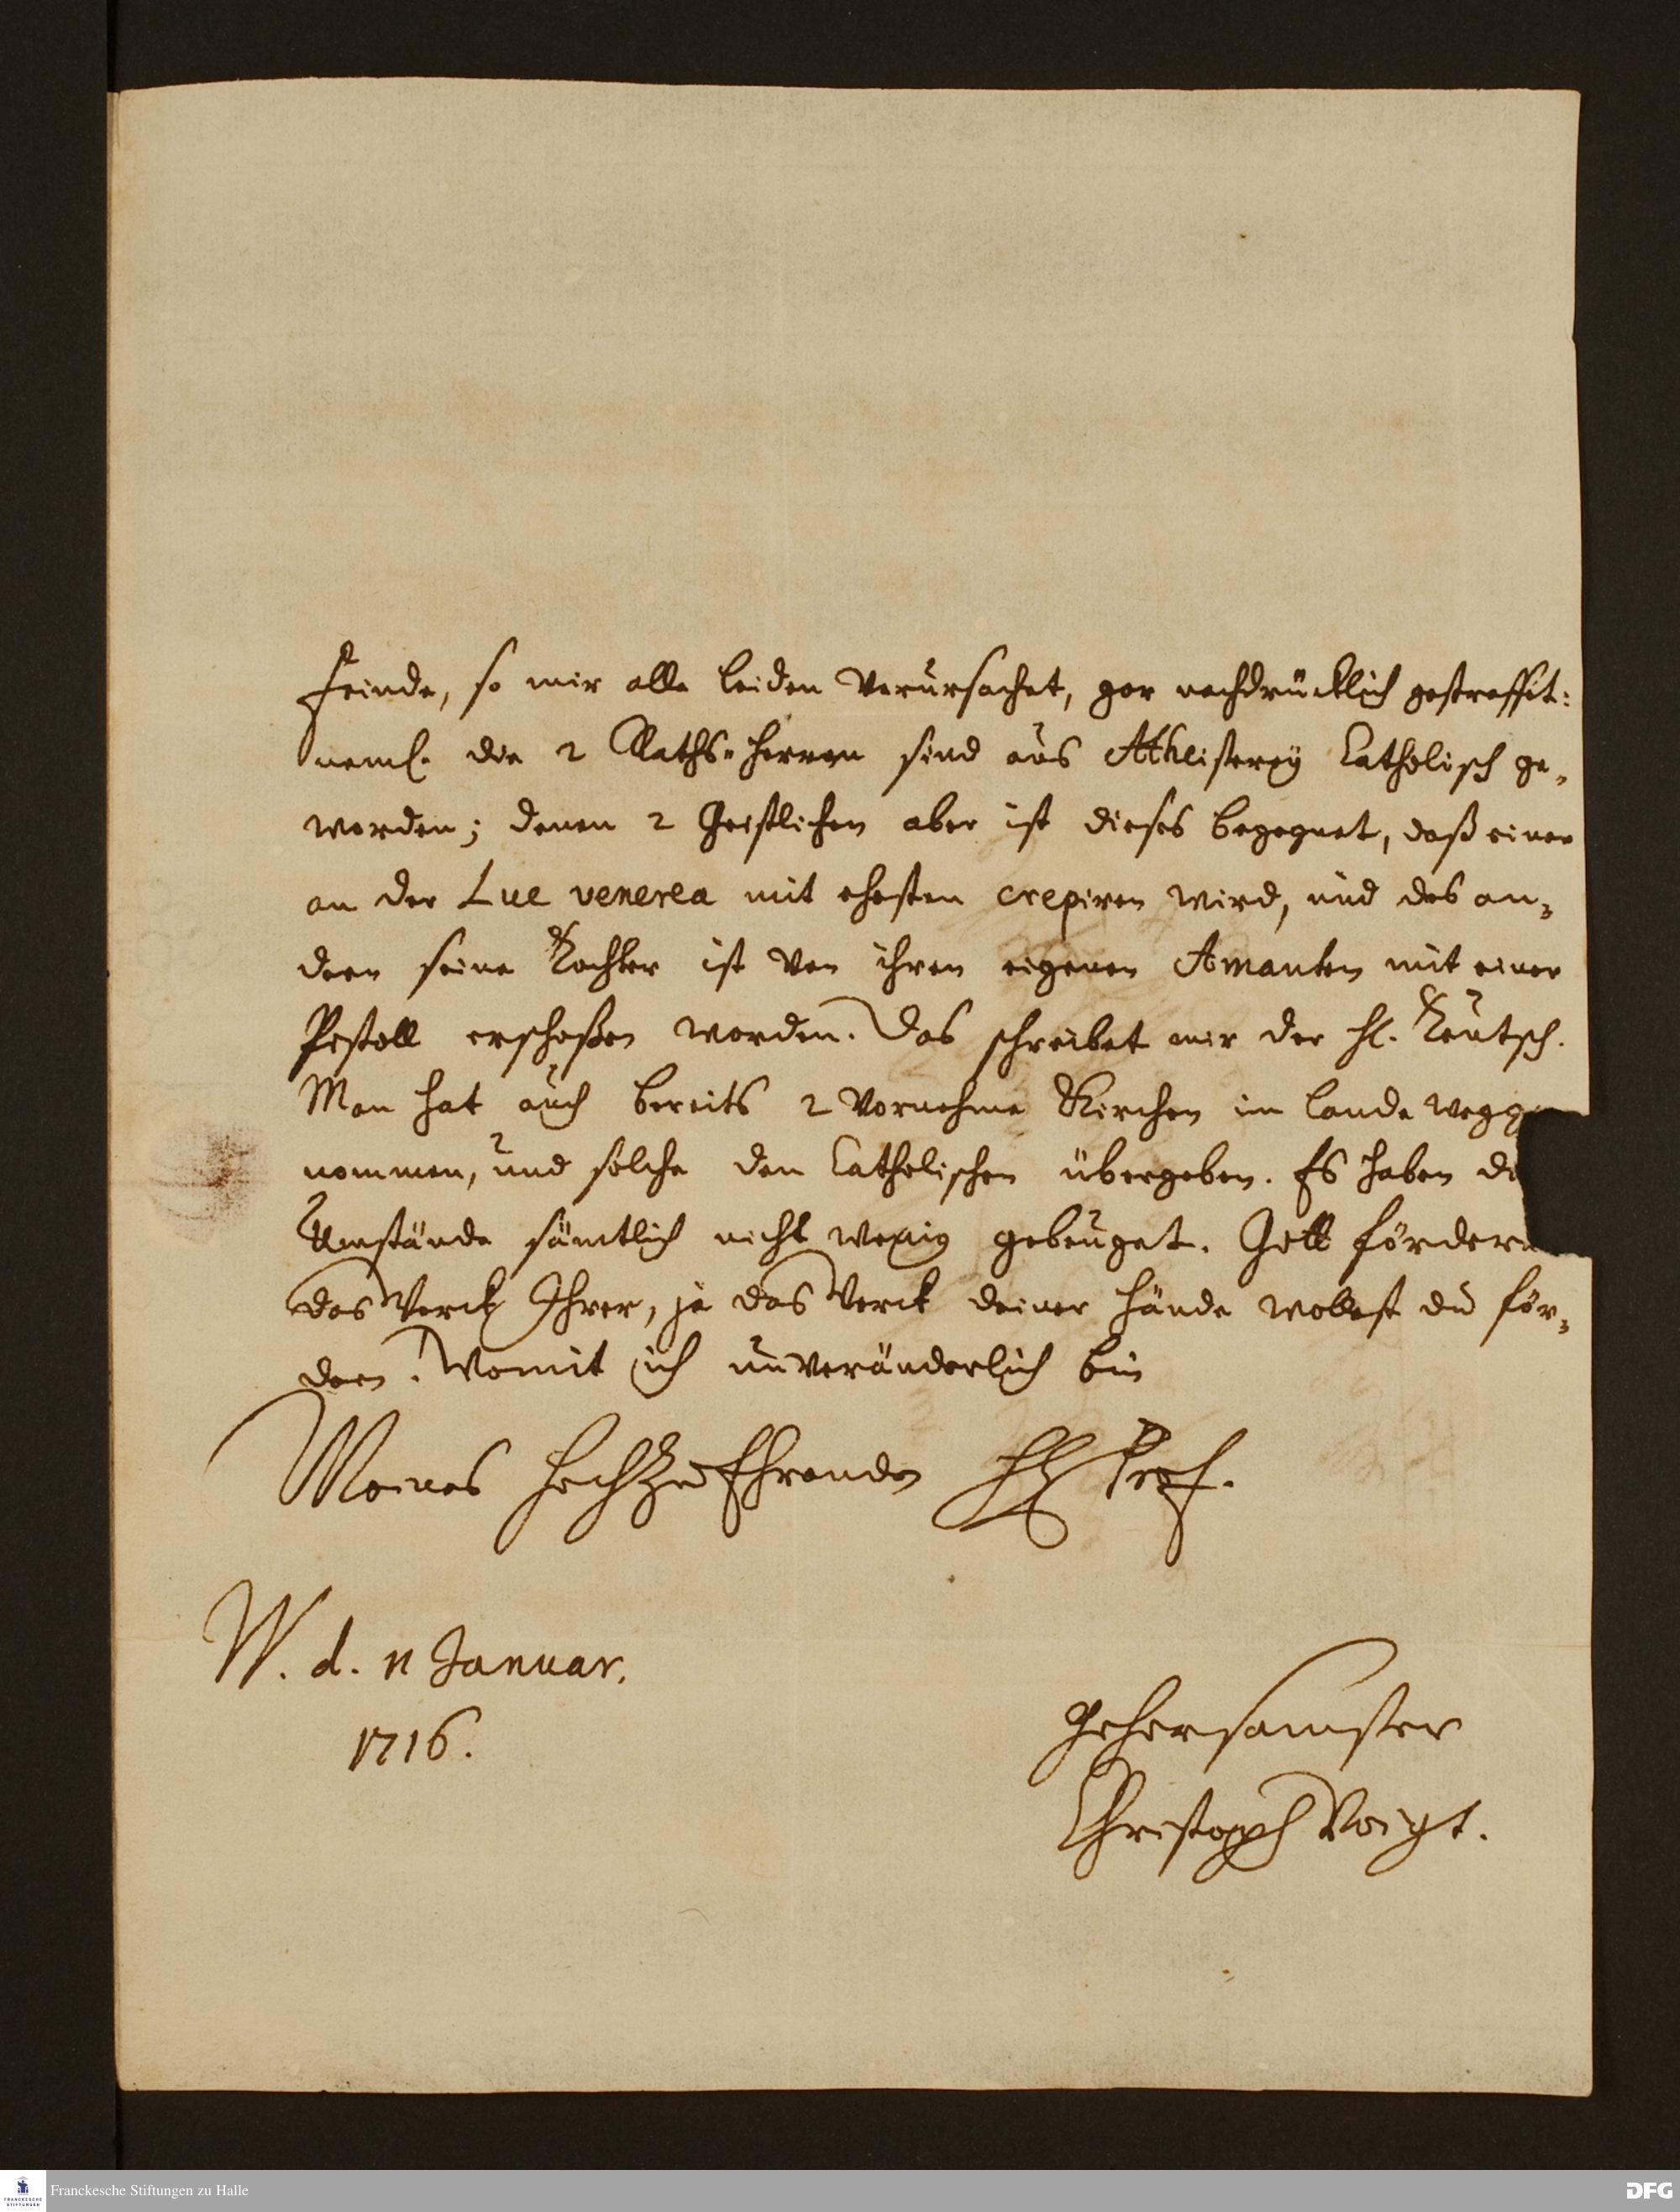 Feinde, so mir alle leiden verursachet, gar nachdrücklich gestraffet:
neml. die 2 Raths-Herren sind aus Atheisterey Catholisch ge-
worden; denen 2 Geistlichen aber ist dieses begegnet, daß einer
an der Lue venerea mit ehesten crepiren wird, und des an-
dern seine Tochter ist von ihren eigenen Amanten mit einer
Pistoll erschoßen worden. Das schreibet mir der H.
Man hat auch bereits 2 vornehme Kirchen im lande wegge
nommen, und solche den Catholischen übergeben. Es haben di
Umstände sämtlich nicht wenig gebeuget. Gott fördere
das Werck Ihrer, ja das Werck deiner Hände wollest du för-
dern. Womit ich unveränderlich bin
Meines HochzuEhrenden H. Prof.
W. d. 11 Januar.
1716.
gehorsamster
Christoph Voigt.
Franckesche Stiftungen zu Halle
DFG